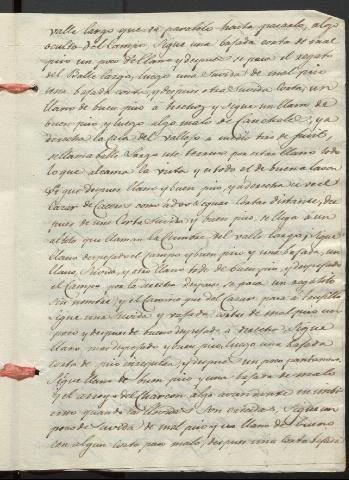 valle largo que es paralelo hasta pasarlo, algo
oculto del Campo, sigue una bajada corta de mal
piso un poco de llano y despues se pasa el regato
del Valle largo, luego una Suvida de mal piso
una bajada corta, y despues otra Suvida corta, un
llano de buen piso a trechos y sigue un llano de
buen piso y luego algo malo de canchales; a
derecha la del vallejo a tiro de fusil,
se llama Valle Largo este terreno por estar llano todo
lo que alcanza la vista, y es todo el de buena labor
Sigue despues llano y buen piso, y a derecha se ve el
Casar de Caceres como a dos leguas cortas distante, des
pues de una Corta Suvida y buen piso, se llega a un
altito que llaman la Cumbre del valle largo, sigue
llano despejado el Campo y buen piso y una bajada, un
llano, Suvida, y otro llano todo de buen piso, y despejado
el Campo por la derecha despues se pasa un regatito
sin nombre, y el Camino que del Casar pasa a
Sigue una Suvida y bajada cortas de mal piso un
poco y despues de bueno despejado a derecha. Sigue
llano mas despejado y buen piso, luego una bajada
corta de piso irregular, y despues un poco pantanoso.
Sigue llano de buen piso y una bajada de malo
y el arroyo del Charcon algo
como quando las lluvias son crecidas, sigue un
poco de Suvida de mal piso y un llano de bueno
con algun corto paso malo, despues una corta bajada